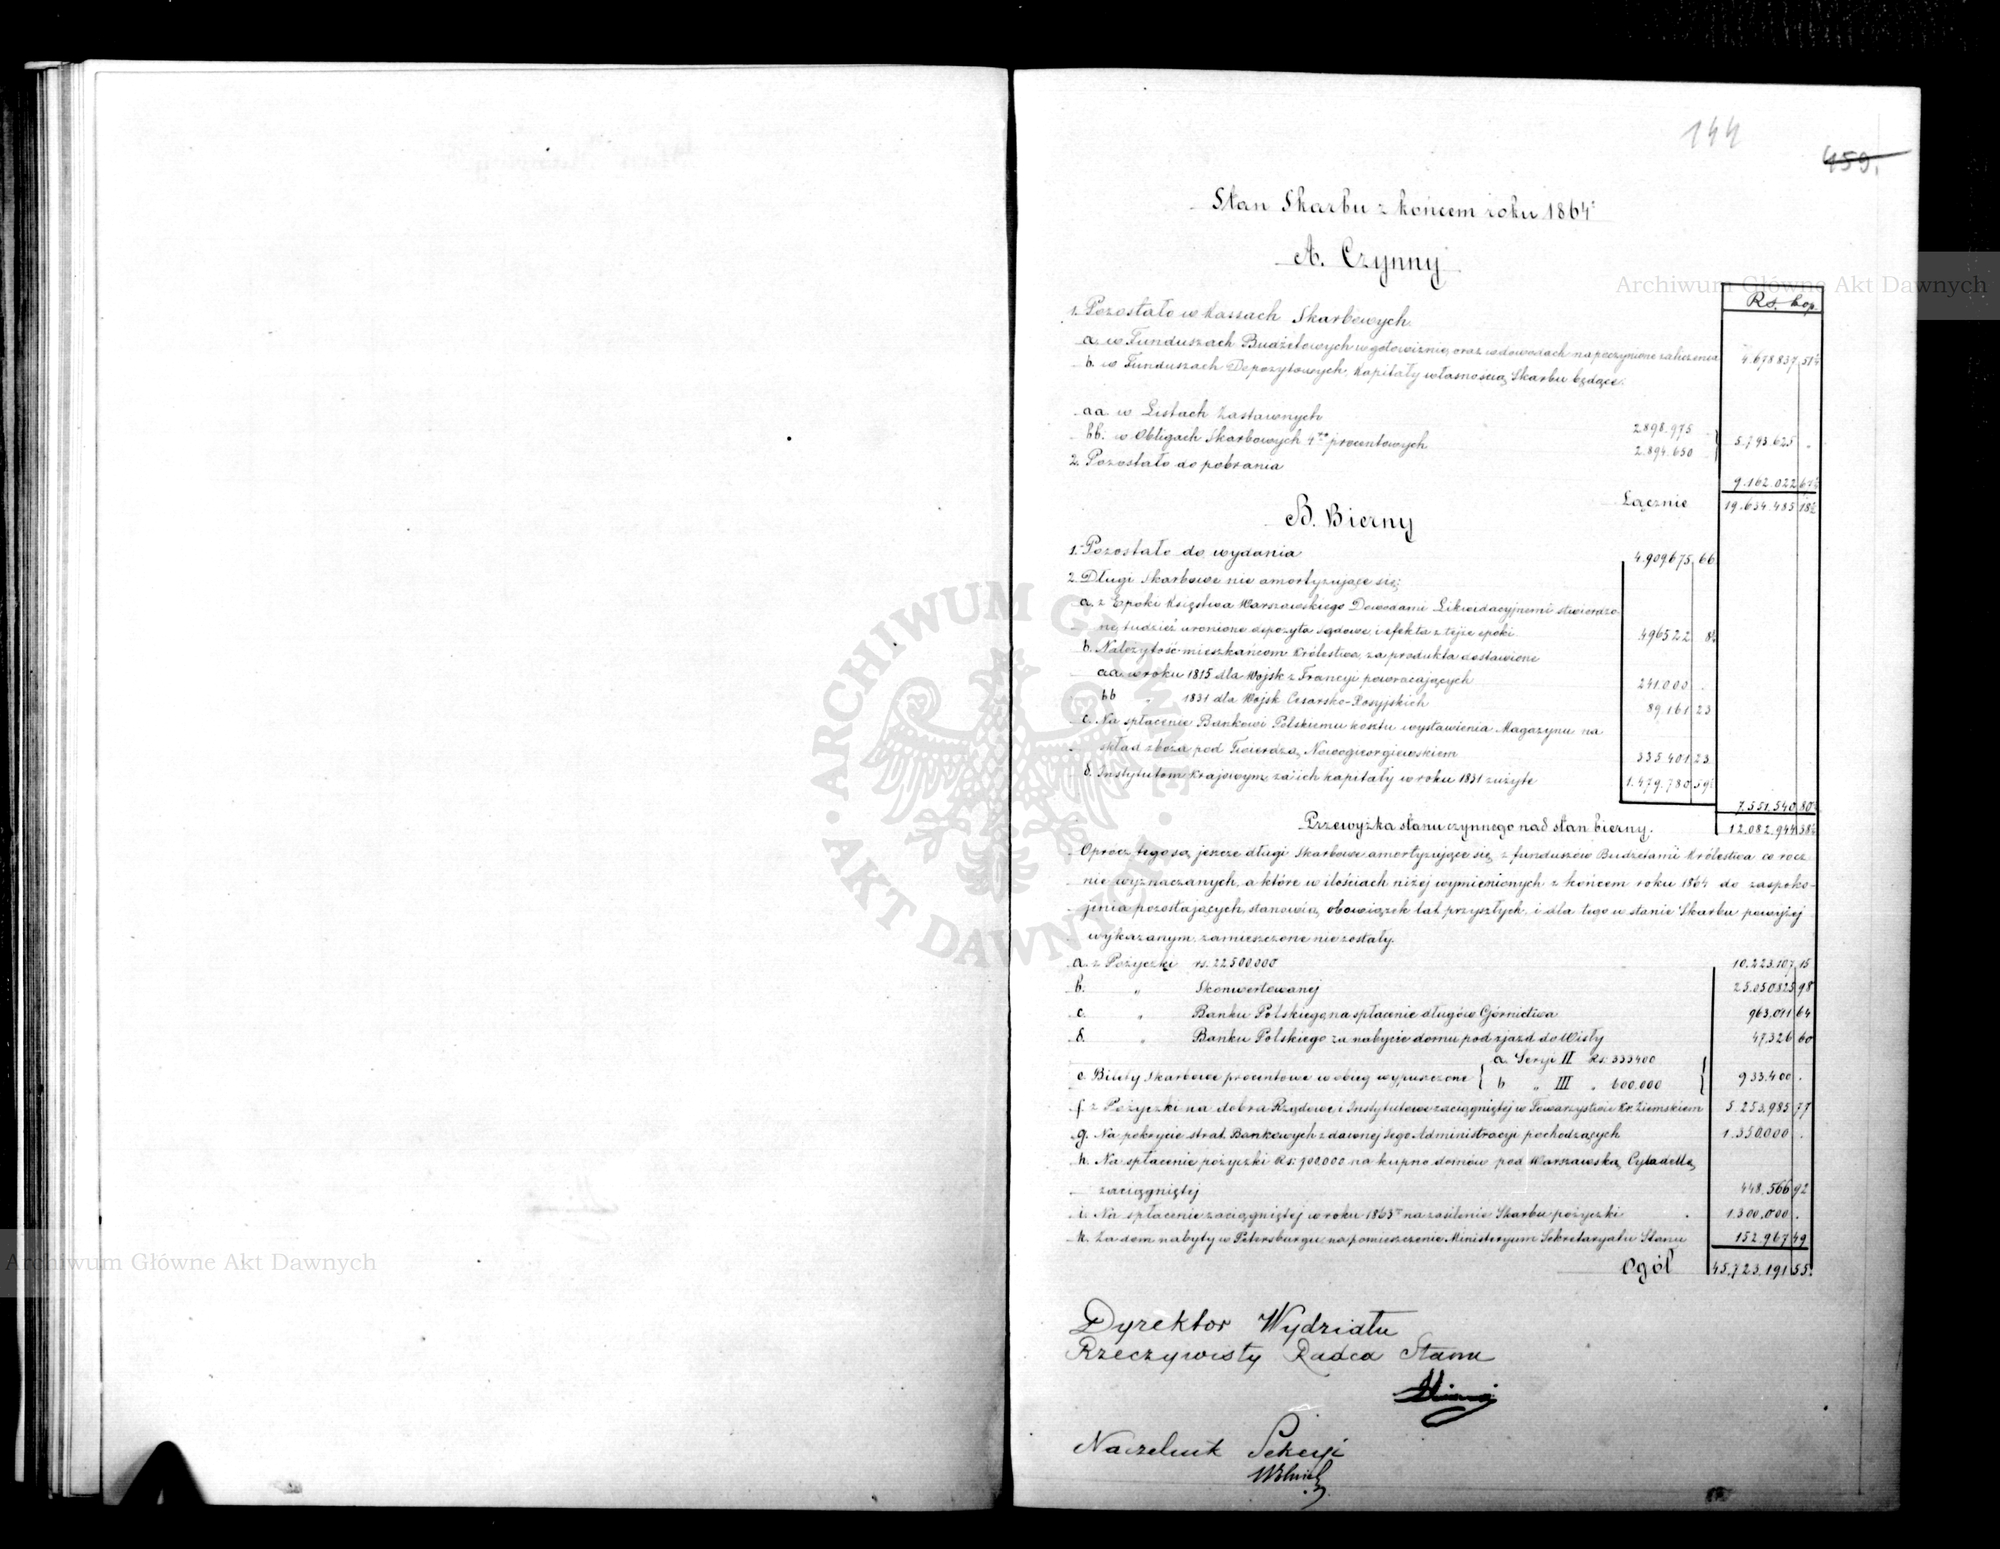 144
459.
Stan Skarbu z końcem roku 1864:
A. Czynny
Rs. kop.
1. Pozostało w Kassach Skarbowych
a. w Funduszach Budżetowych w gotowiźnie, oraz w dowodach na poczynione zaliczenia 4.678.837 51½
b. w Funduszach Depozytowych, Kapitały własnością Skarbu będące:
aa. w Listach Zastawnych 2.898.975
bb. w Obligach Skarbowych 4ro procentowych 2.894.650 5.793.625 "
2. Pozostało do pobrania 9.162.022 67½
Łącznie 19.634.485 18½
B. Bierny
1. Pozostało do wydania 4.909.675 66
2. Długi Skarbowe nie amortyzujące się:
a. z Epoki Księstwa Warszawskiego Dowodami Likwidacyjnemi stwierdzo-
ne, tudzież uronione depozyta sądowe i efekta z tejże epoki 496522 8½
b. Należytość mieszkańcom Królestwa, za produkta dostawione
aa w roku 1815 dla Wojsk z Francyi powracających 241.000 .
bb " 1831 dla Wojsk Cesarsko-Rosyjskich 89.161 23
c. Na spłacenie Bankowi Polskiemu kosztu wystawienia Magazynu na
skład zboża pod Twierdzą Nowogieorgiewskiem 335.401 23
d. Instytutom Krajowym, za ich kapitały w roku 1831 zużyte 1.479.780 59½
7.551.540 80
Przewyżka stanu czynnego nad stan bierny. 12.082.944 38½
Oprócz tego są jeszcze długi Skarbowe amortyzujące się z funduszów Budżetami Królestwa co rocz-
nie wyznaczanych, a które w ilościach niżej wymienionych z końcem roku 1864 do zaspoko-
jenia pozostających, stanowią obowiązek lat przyszłych, i dla tego w stanie Skarbu powyżej
wykazanym, zamieszczone nie zostały.
a. z Pożyczki rs. 22500.000 10.223.107 15
b. " Skonwertowanej 25.050.825 98
c. " Banku Polskiego, na spłacenie długów Górnictwa 963.041 64
d. " Banku Polskiego za nabycie domu pod zjazd do Wisły 47.326 60
a. Seryi II Rs. 333400
e. Bilety Skarbowe procentowe w obieg wypuszczone 933.400 .
b " III " 600.000
f. z Pożyczki na dobra Rządowe i Instytutowe zaciągniętej w Towarzystwie Kr. Ziemskiem 5.253.985 77
g. Na pokrycie strat Bankowych z dawnej jego Administracyi pochodzących 1.350.000 .
h. Na spłacenie pożyczki Rs. 700.000 na kupno domów pod Warszawską Cytadellę
zaciągniętej 448.566 92
i. Na spłacenie zaciągniętej w roku 1863m na zasilenie Skarbu pożyczki 1.300.000 .
k. Za dom nabyty w Petersburgu, na pomieszczenie Ministeryum Sekretaryatu Stanu 152.967 49
Ogół 45.723.191 55.
Dyrektor Wydziału
Rzeczywisty Radca Stanu
Naczelnik Sekcyi
Archiwum Główne Akt Dawnych
ARCHIWUM GŁÓWNE AKT DAWNYCH
Archiwum Główne Akt Dawnych